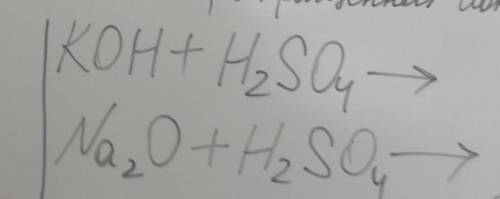 KOH + H₂SO₄ →
Na₂O + H₂SO₄ →